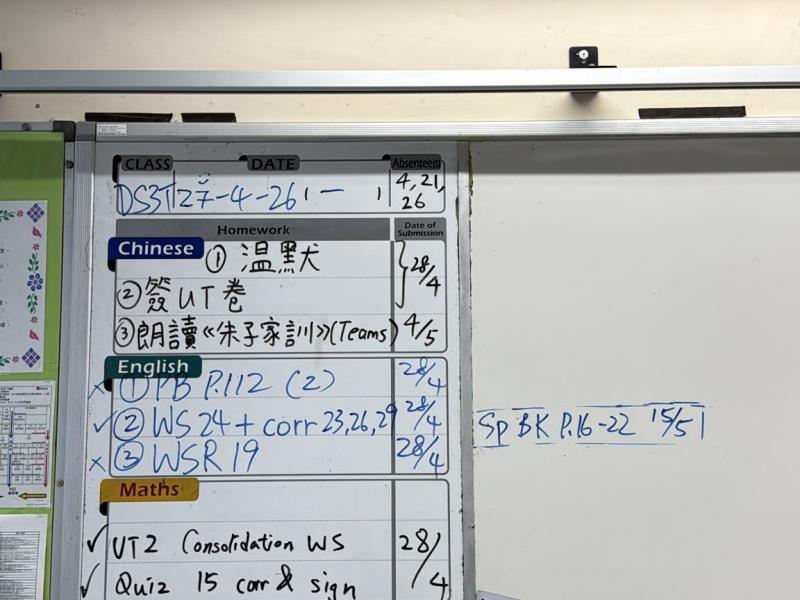 CLASS DATE Absentees
DS3T 27-4-26 1 — 1 4, 21, 26
Homework Date of Submission
Chinese
① 温默犬 28/4
② 簽UT卷
③ 朗讀《朱子家訓》(Teams) 4/5
English
× ① PB P.112 (2) 28/4
✓ ② WS 24 + corr 23, 26, 29 28/4
× ③ WSR 19 28/4
Sp BK P.16-22 15/5
Maths
✓ UT2 Consolidation WS 28/4
✓ Quiz 15 corr & sign